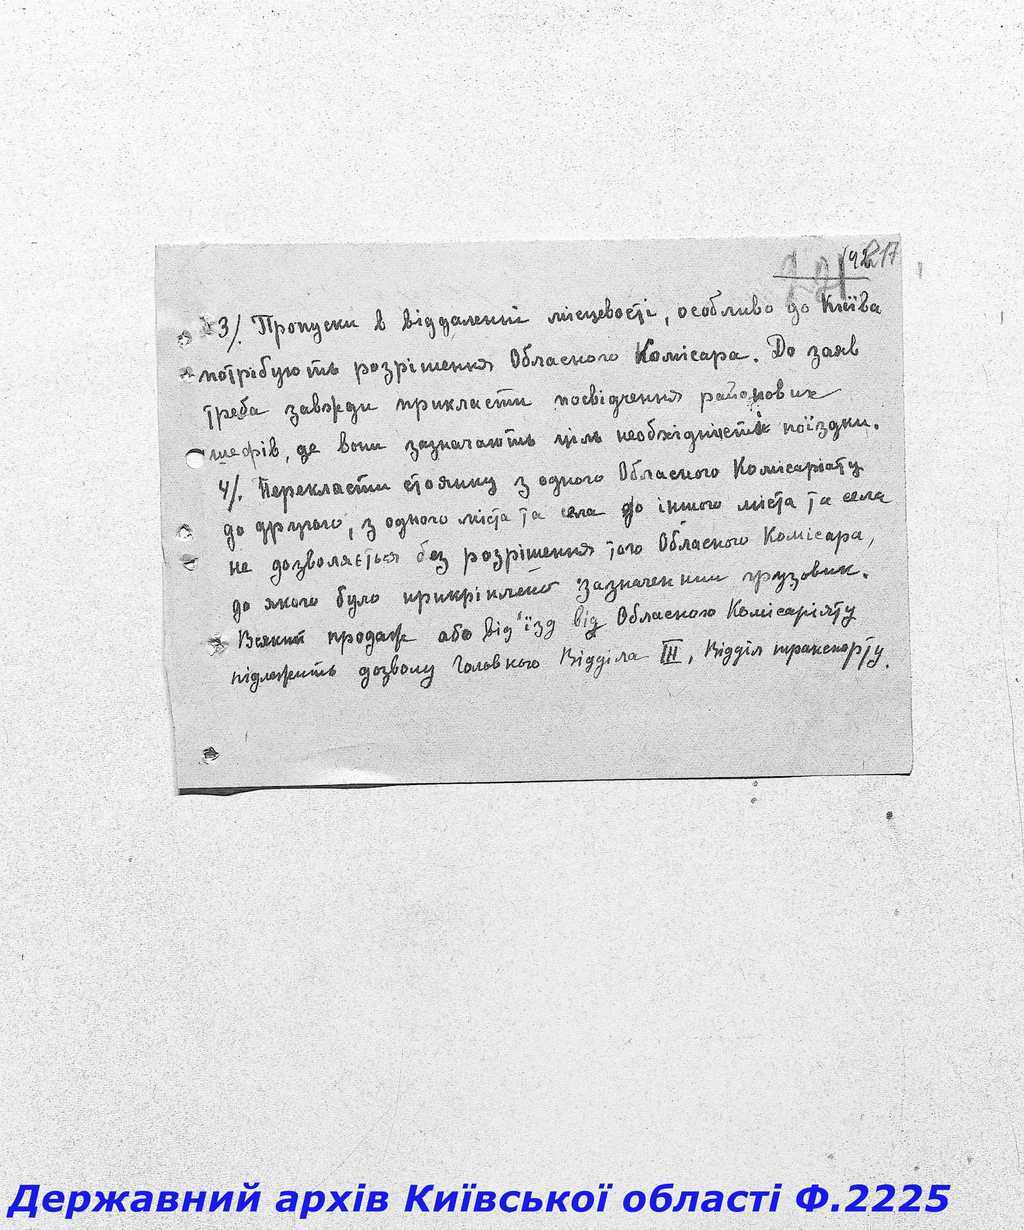 217
3/. Пропуски в віддалений місцевості, особливо до Київа
потрібують розрішення Обласного Комісара. До заяв
треба завжди прикласти посвідчення районових
шефів, де вони зазначають ціль необхідністі поїздки.
4/. Перекласти стоянку з одного Обласного Комісаріяту
до другого, з одного міста та села до іншого міста та села
не дозволяється без розрішення того Обласного Комісара,
до якого було прикріплено зазначенний грузовик.
Всякий продаж або від'їзд від Обласного Комісаріяту
підлежить дозволу Головного Відділа III, Відділ транспорту.
Державний архів Київської області Ф.2225